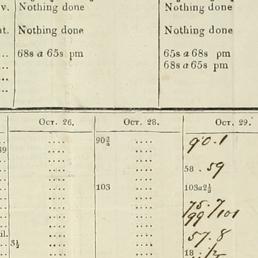 v. Nothing done Nothing done
nt. Nothing done Nothing done
68s a 65s pm 65s a 68s pm
68s a 65s pm
Oct. 26. Oct. 28. Oct. 29.
.... 90¾ 90.1
39 .... ....
.... .... 58 . 59
.... 103 103a2½
.... ....
.... .... 75.7
.... .... 99 / 101
il. .... .... 57.8
3½ ....
.... .... 18